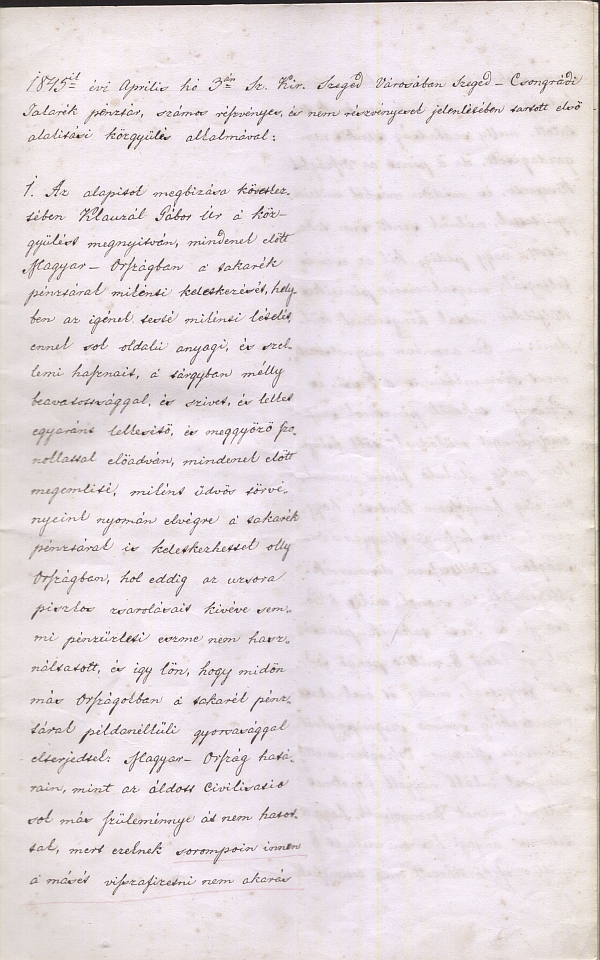 1845ik évi Április hó 3án Sz. Kir. Szeged Városában Szeged – Csongrádi
Takarék pénztár, számos részvényes, és nem részvényesek jelenlétében tartott első
alakitási közgyülés alkalmával:
1. Az alapitok megbizása következ-
tében Klauzál Gábor Ur á köz-
gyülést megnyitván, mindenek előtt
Magyar – Országban á takarék
pénztárak mikénti keletkezését, hely-
ben az igének testé mikénti lételét,
ennek sok oldalú anyagi, és szel-
lemi hasznait, á tárgyban mélly
beavatottsággal, és szivet, és lelket
egyaránt lelkesitő, és meggyőző
előadván, mindenek előtt
megemlité, miként üdvös törvé-
nyeink nyomán elvégre á takarék
pénztárak is keletkezhettek olly
Országban, hol eddig az uzsora
piszkos zsarolásait kivéve sem-
mi pénzüzleti eszme nem hasz-
náltatott, és igy lön, hogy midőn
más Országokban á takarék pénz-
tárak példanélküli gyorsasággal
elterjedtek: Magyar – Ország hatá-
rain, mint az áldott Civilisatio
sok más szüleménnye át nem hatot-
tak, mert ezeknek sorompoin innen
á másét visszafizetni nem akarás